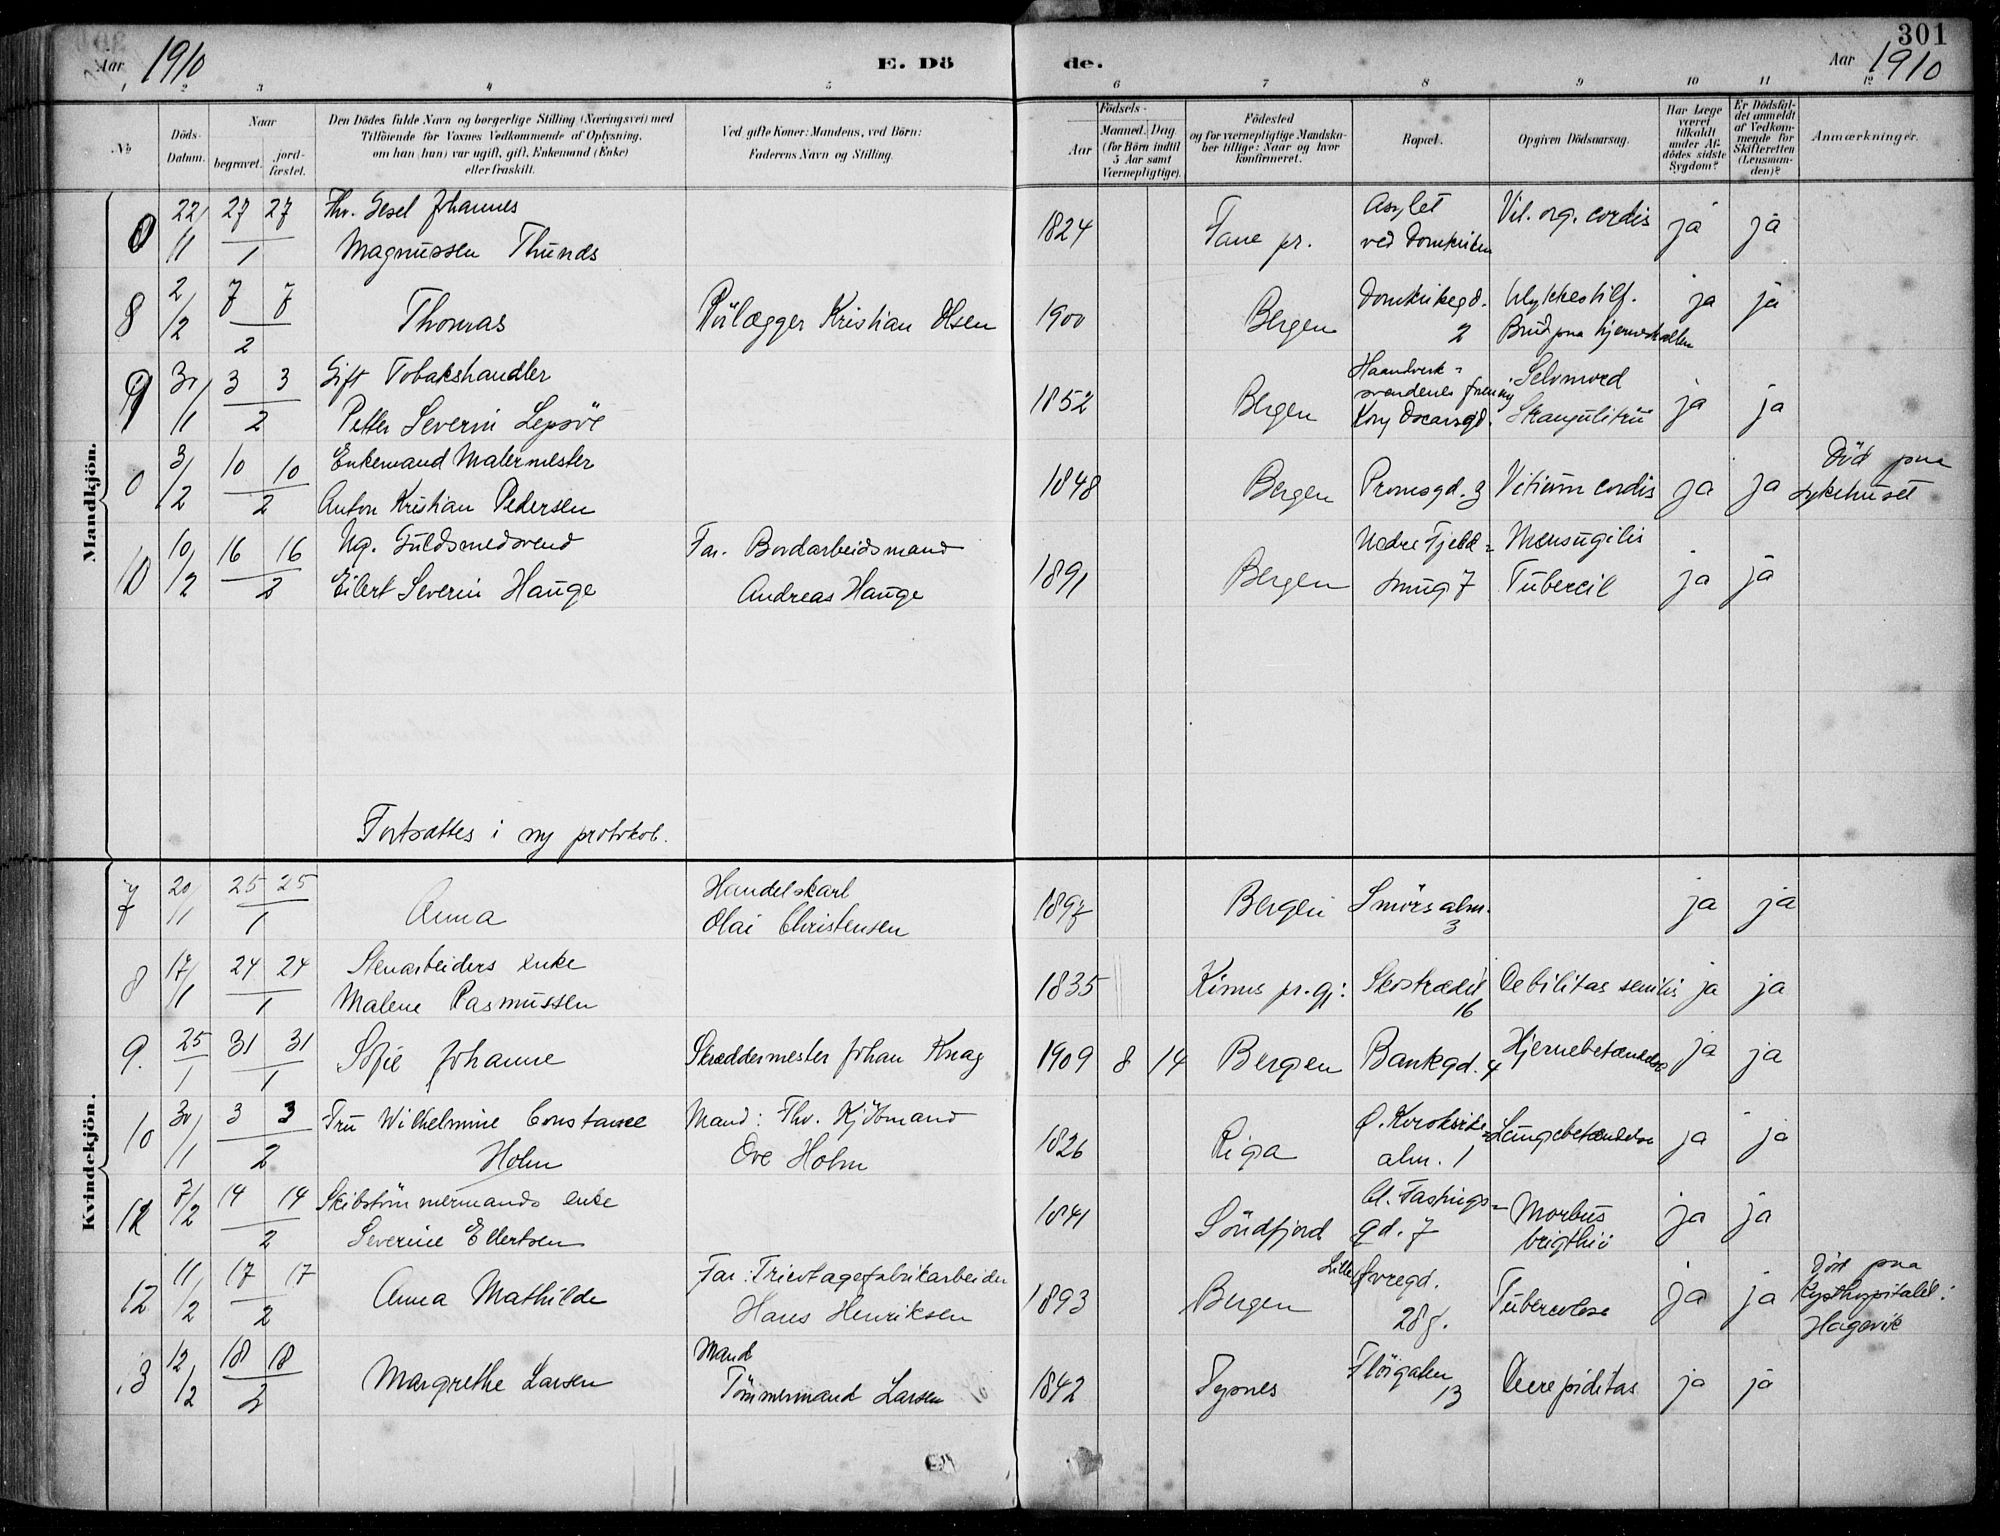 301
Aar 1910 E. Dö
de. Aar 1910
1 2 3 4 5 6 7 8 9 10 11 12
No
Döds-Datum.
Naar
begravet. jord-fæstet.
Den Dödes fulde Navn og borgerlige Stilling (Næringsvei) med
Tilföiende for Voxnes Vedkommende af Oplysning,
om han (hun) var ugift, gift, Enkemand (Enke)
eller fraskilt.
Ved gifte Koner: Mandens, ved Börn:
Faderens Navn og Stilling.
Födsels-
Aar
Maaned. Dag
(for Börn indtil
5 Aar samt
Værnepligtige).
Födested
og for værnepligtige Mandska-
ber tillige: Naar og hvor
konfirmeret.
Bopæl.
Opgiven Dödsaarsag.
Har Læge
været
tilkaldt
under Af-
dödes sidste
Sygdom?
Er Dödsfal-
det anmeldt
af Vedkom-
mende for
Skifteretten
(Lensman-
den)?
Anmærkninger.
Mandkjön.
22/11 27 27/1 Fhv. Gesel Johannes
Magnussen Thunes
1824 Fane pr. Asylet
ved Domkirken Vit. org. cordis ja ja
8 2/2 7 7/2 Thomas Rörlægger Kristian Olsen 1900 Bergen Domkirkegd.
2 Ulykkestilf.
Brud paa hjerneskallen ja ja
9 30/1 3 3/2 Gift Tobakshandler
Petter Severin Lepsöe
1852 Bergen Haandverk-
svendenes forening
Kong Oscarsgd. Selvmord
ja ja
3/2 10 10/2 Enkemand Malermester
Anton Kristian Pedersen
1848 Bergen Promsgd. 3 Vitium cordis ja ja Död paa
sykehuset
10 10/2 16 16/2 Ug. Guldsmedsvend
Eilert Severin Hauge
Far. Bordarbeidsmand
Andreas Hauge
1891 Bergen Nedre Fjeld-
smug 7
ja ja
Fortsættes i ny protokol.
Kvindekjön.
7 20/1 25 25/1 Anna Handelskarl
Olai Christensen
1897 Bergen Smörsalm.
3 ja ja
8 17/1 24 24/1 Stenarbeiders enke
Malene Rasmussen
1835 Kinns pr.gj: Skostrædet
16 Debilitas senilis ja ja
9. 25/1 31 31/1 Sofie Johanne Skræddermester Johan Knag 1909 8 14 Bergen Bankgd. 4 Hjernebetændelse ja ja
10 30/1 3 3/2 Fru Wilhelmine Constance
Holm
Mand: Fhv. Kjöbmand
Ove Holm
1826 Riga Ø. Kroksitte-
alm. 1 Lungebetændelse ja ja
11 7/2 14 14/2 Skibstömmermands enke
Severine Ellertsen
1841 Söndfjord Cl. Fastings-
gd. 7 Morbus
brigthii ja ja
12 11/2 17 17/2 Anna Mathilde Far: Tricotagefabrikarbeider
Hans Henriksen
1893 Bergen Lille Øvregd.
28 Tuberculose ja ja Död paa
Kysthospitalet i
Hagevik
13 12/2 18 18/2 Margrethe Larsen Mand
Tömmermand Larsen
1842 Tysnes Flöigaten
13 Decrepiditas ja ja